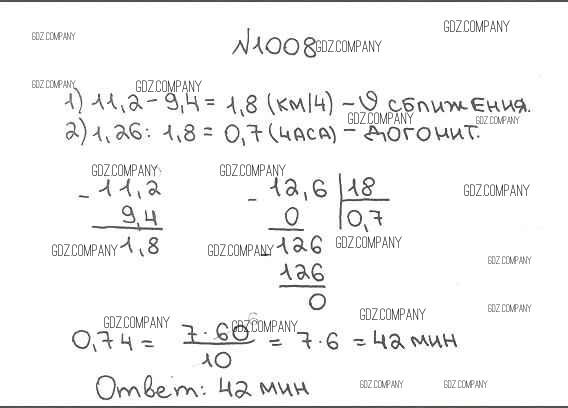 GDZ.COMPANY
GDZ.COMPANY
№1008 GDZ.COMPANY
GDZ.COMPANY GDZ.COMPANY
1) 11,2 - 9,4 = 1,8 (км/ч) - υ сближения.
GDZ.COMPANY GDZ.COMPANY
2) 1,26 : 1,8 = 0,7 (часа) - догонит.
GDZ.COMPANY GDZ.COMPANY
- 11,2 - 12,6 | 18 GDZ.COMPANY
9,4 0 0,7
GDZ.COMPANY 1,8 GDZ.COMPANY - 126 GDZ.COMPANY
GDZ.COMPANY
126
0
GDZ.COMPANY GDZ.COMPANY GDZ.COMPANY GDZ.COMPANY
0,7ч = 7·60 6 / 10 = 7·6 = 42 мин
Ответ: 42 мин
GDZ.COMPANY GDZ.COMPANY